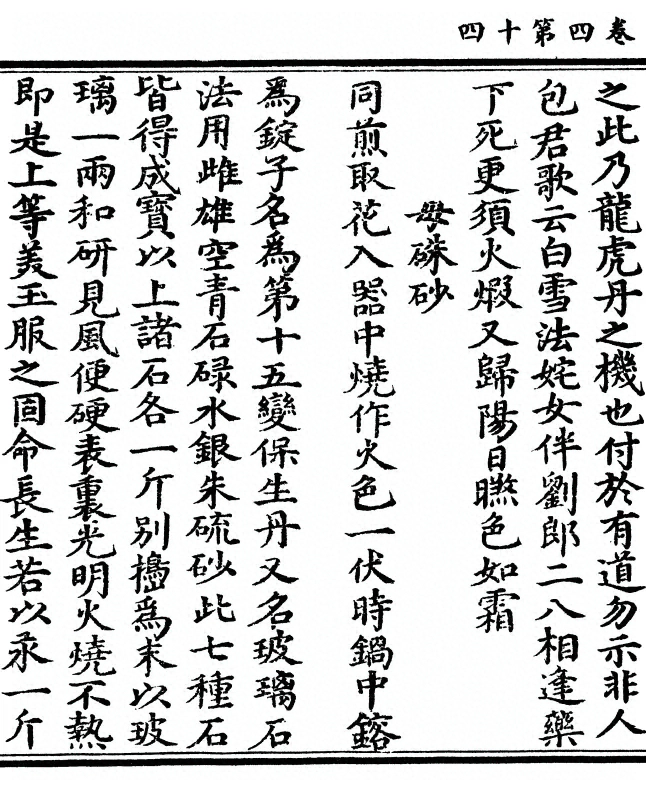 卷四第十四
之此乃龍虎丹之機也付於有道勿示非人
包君歌云白雪法姹女伴劉郎二八相逢藥
下死更須火煆又歸陽日㬠色如霜
母硃砂
同煎取花入器中燒作火色一伏時鍋中鎔
為錠子名為第十五變保生丹又名玻璃石
法用雌雄空青石碌水銀朱硫砂此七種石
皆得成寶以上諸石各一斤別擣為末以玻
璃一兩和研見風便硬表裏光明火燒不熱
即是上等美玉服之固命長生若以汞一斤